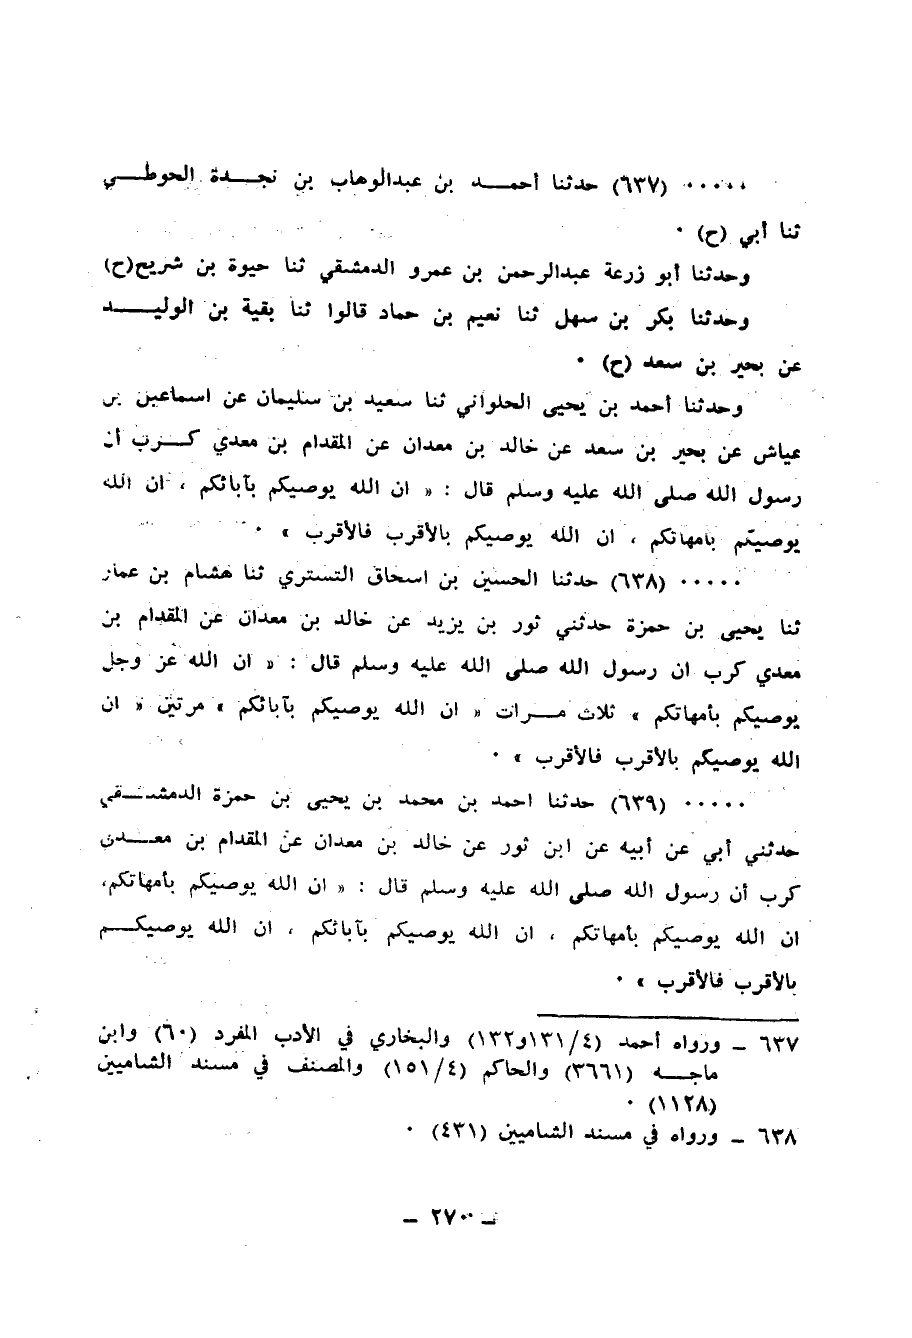 ٠٠٠٠٠ (٦٣٧) حدثنا أحمـــد بن عبدالوهاب بن نجـــدة الحوطـــي
ثنا أبي (ح) ٠
وحدثنا أبو زرعة عبدالرحمن بن عمرو الدمشقي ثنا حيوة بن شريح(ح)
وحدثنا بكر بن سهل ثنا نعيم بن حماد قالوا ثنا بقية بن الوليـــد
عن بحير بن سعد (ح) ٠
وحدثنا أحمد بن يحيى الحلواني ثنا سعيد بن سليمان عن اسماعيل بن
عياش عن بحير بن سعد عن خالد بن معدان عن المقدام بن معدي كـــرب أن
رسول الله صلى الله عليه وسلم قال : « ان الله يوصيكم بآبائكم ، ان الله
يوصيكم بأمهاتكم ، ان الله يوصيكم بالأقرب فالأقرب » ٠
٠٠٠٠٠ (٦٣٨) حدثنا الحسين بن اسحاق التستري ثنا هشام بن عمار
ثنا يحيى بن حمزة حدثني ثور بن يزيد عن خالد بن معدان عن المقدام بن
معدي كرب ان رسول الله صلى الله عليه وسلم قال : « ان الله عز وجل
يوصيكم بأمهاتكم » ثلاث مـــرات « ان الله يوصيكم بآبائكم » مرتين « ان
الله يوصيكم بالأقرب فالأقرب » ٠
٠٠٠٠٠ (٦٣٩) حدثنا احمد بن محمد بن يحيى بن حمزة الدمشـــقي
حدثني أبي عن أبيه عن ابن ثور عن خالد بن معدان عن المقدام بن معـــدي
كرب أن رسول الله صلى الله عليه وسلم قال : « ان الله يوصيكم بأمهاتكم،
ان الله يوصيكم بأمهاتكم ، ان الله يوصيكم بآبائكم ، ان الله يوصيكـــم
بالأقرب فالأقرب » ٠
٦٣٧ ـ ورواه أحمد (٤/١٣١و١٣٢) والبخاري في الأدب المفرد (٦٠) وابن
ماجـــه (٣٦٦١) والحاكم (٤/١٥١) والمصنف في مسند الشاميين
(١١٢٨) ٠
٦٣٨ ـ ورواه في مسند الشاميين (٤٣١) ٠
ـ ٢٧٠ ـ